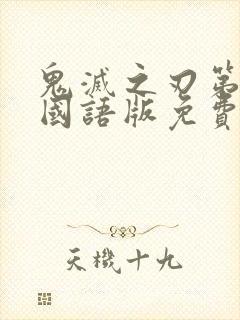 鬼滅之刃第
國語版免費
天機十九